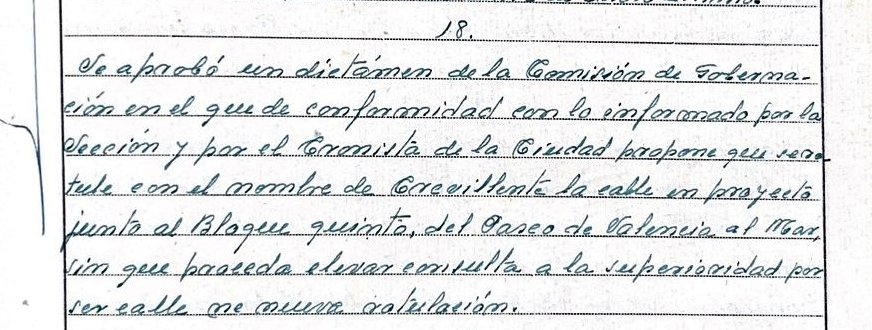 18.
Se aprobó un dictámen de la Comisión de Goberna-
ción en el que de conformidad con lo informado por la
Sección y por el Cronista de la Ciudad propone que se ro-
tule con el nombre de Crevillente la calle en proyecto
junto al Bloque quinto, del Paseo de Valencia al Mar,
sin que proceda elevar consulta a la superioridad por
ser calle de nueva rotulación.